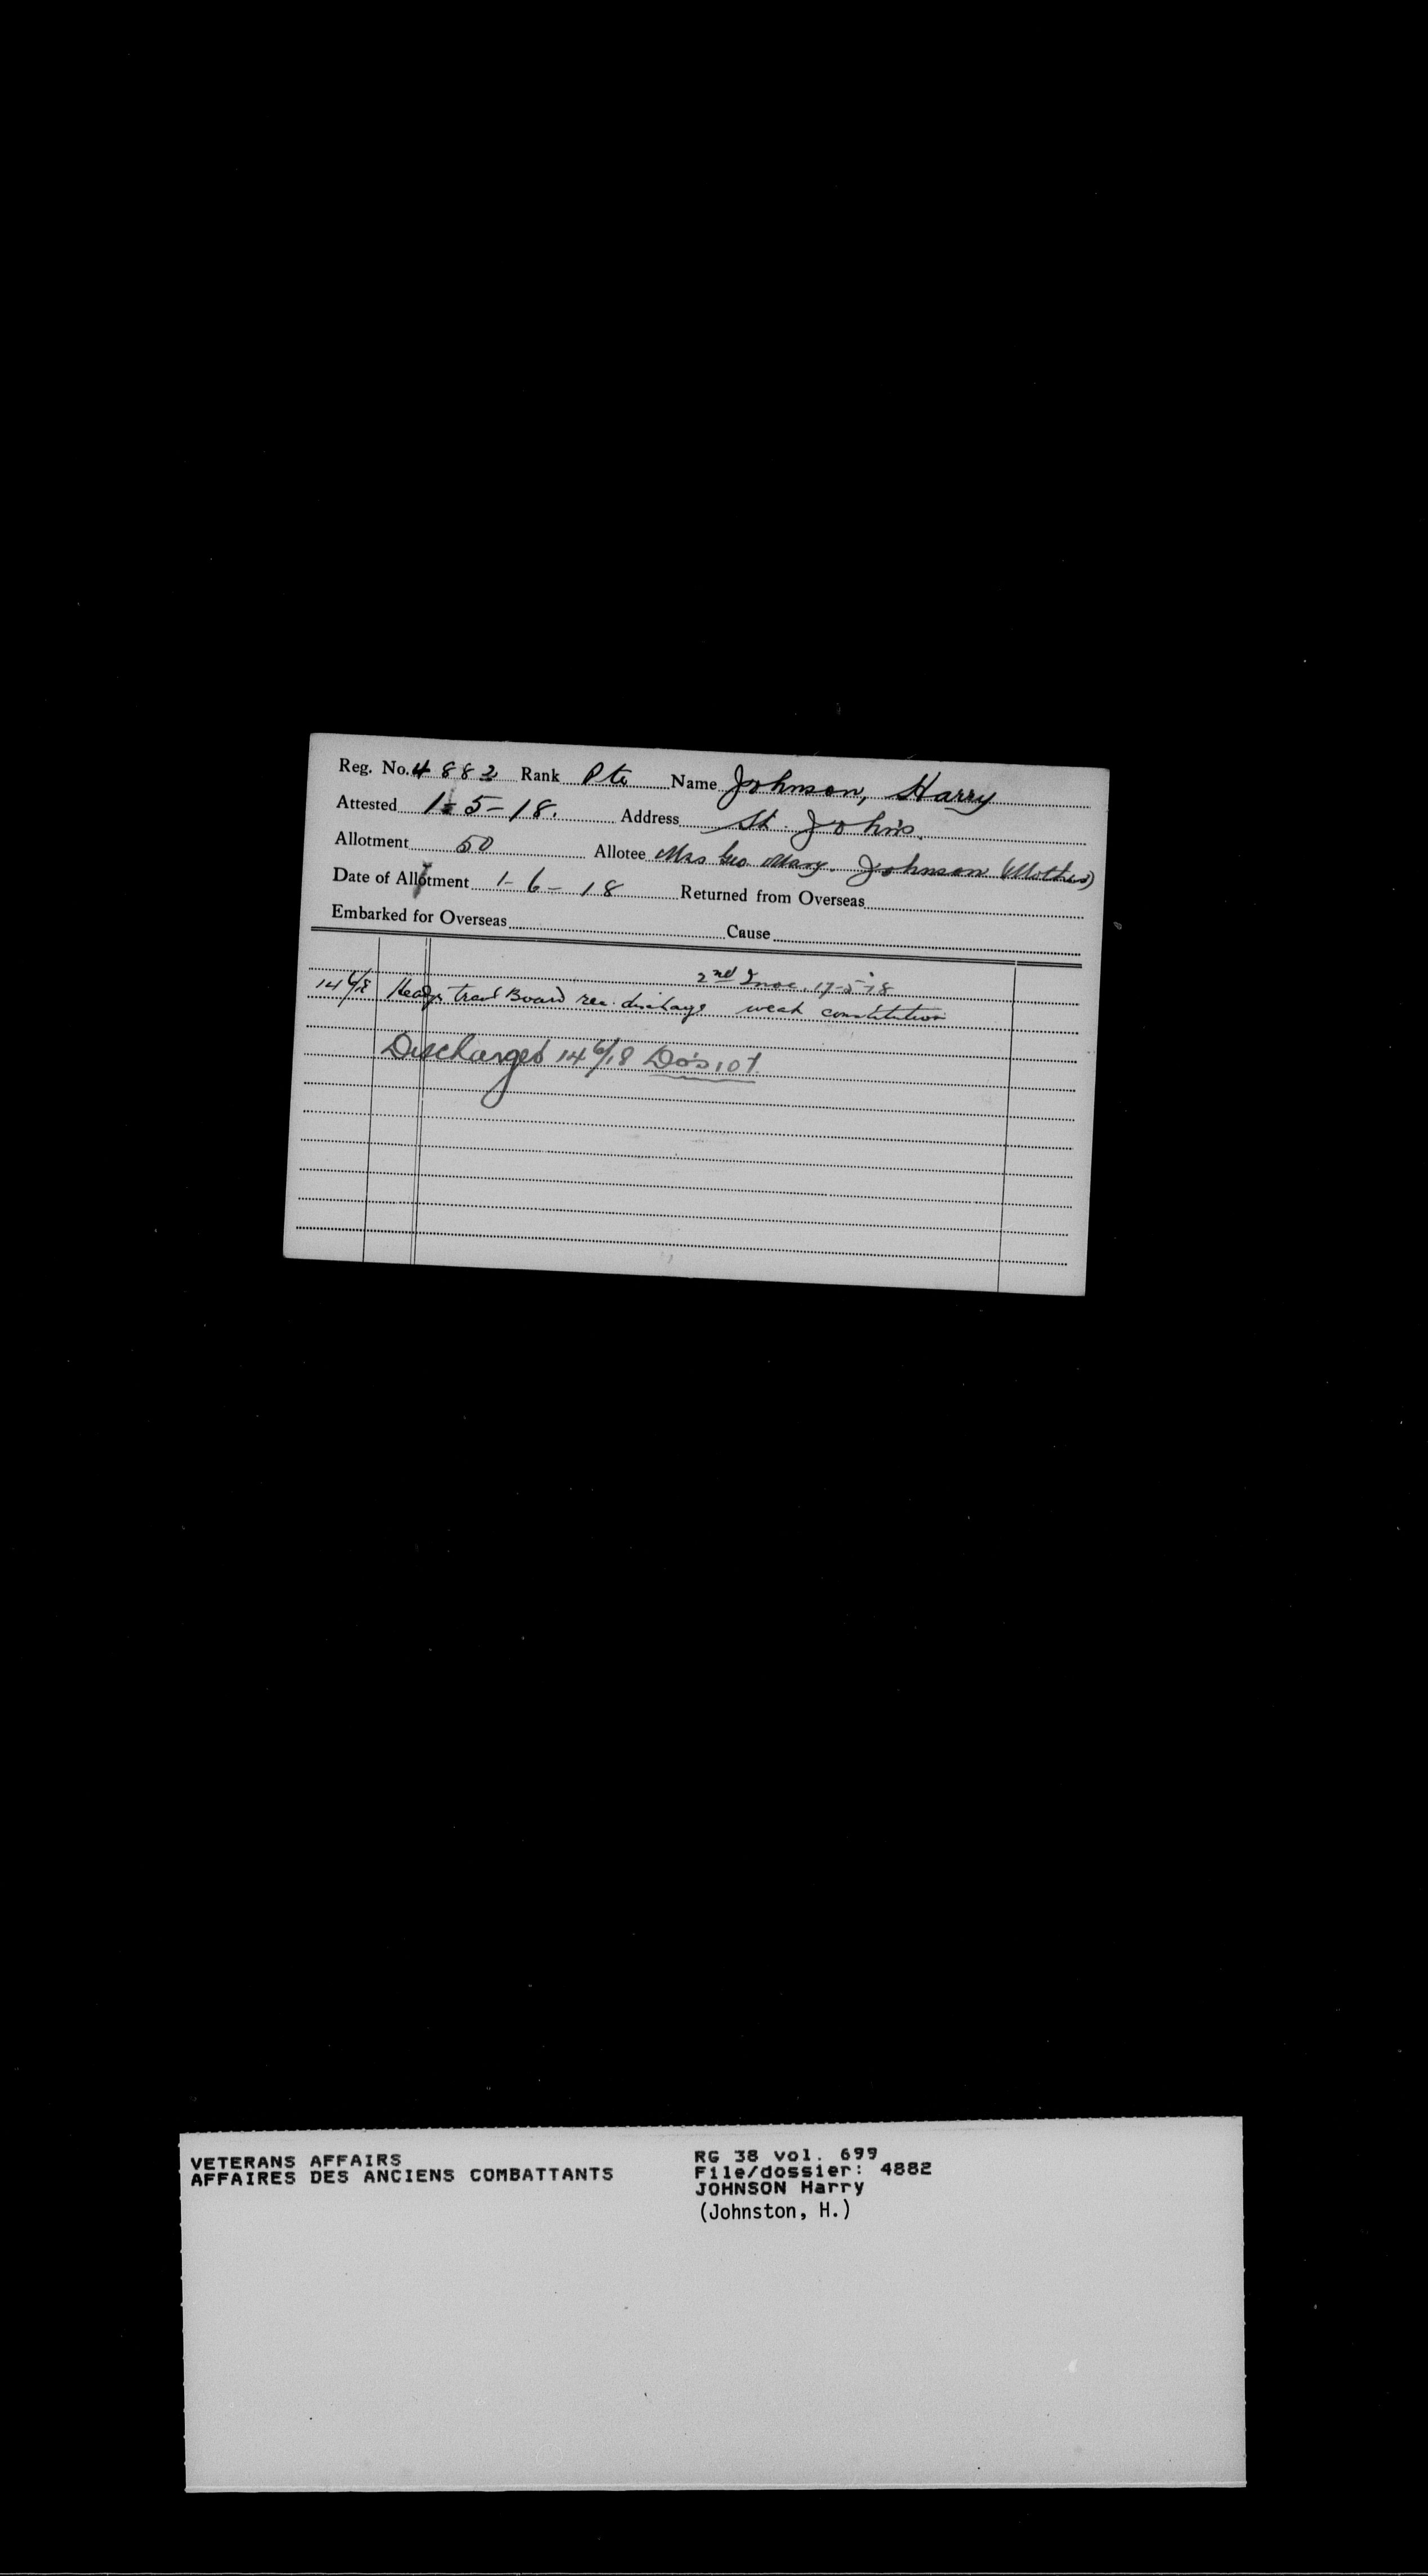 Reg. No. 4882 Rank Pte Name Johnson, Harry
Attested 1-5-18. Address St. John's.
Allotment 50 Allotee Mrs Geo Mary. Johnson (Mother)
Date of Allotment 1-6-18 Returned from Overseas
Embarked for Overseas Cause
2nd Inoc. 17-5-18
14 6/18 Board rec. discharge weak constitution
Discharged 14 6/18
VETERANS AFFAIRS
AFFAIRES DES ANCIENS COMBATTANTS
RG 38 vol. 699
File/dossier: 4882
JOHNSON Harry
(Johnston, H.)